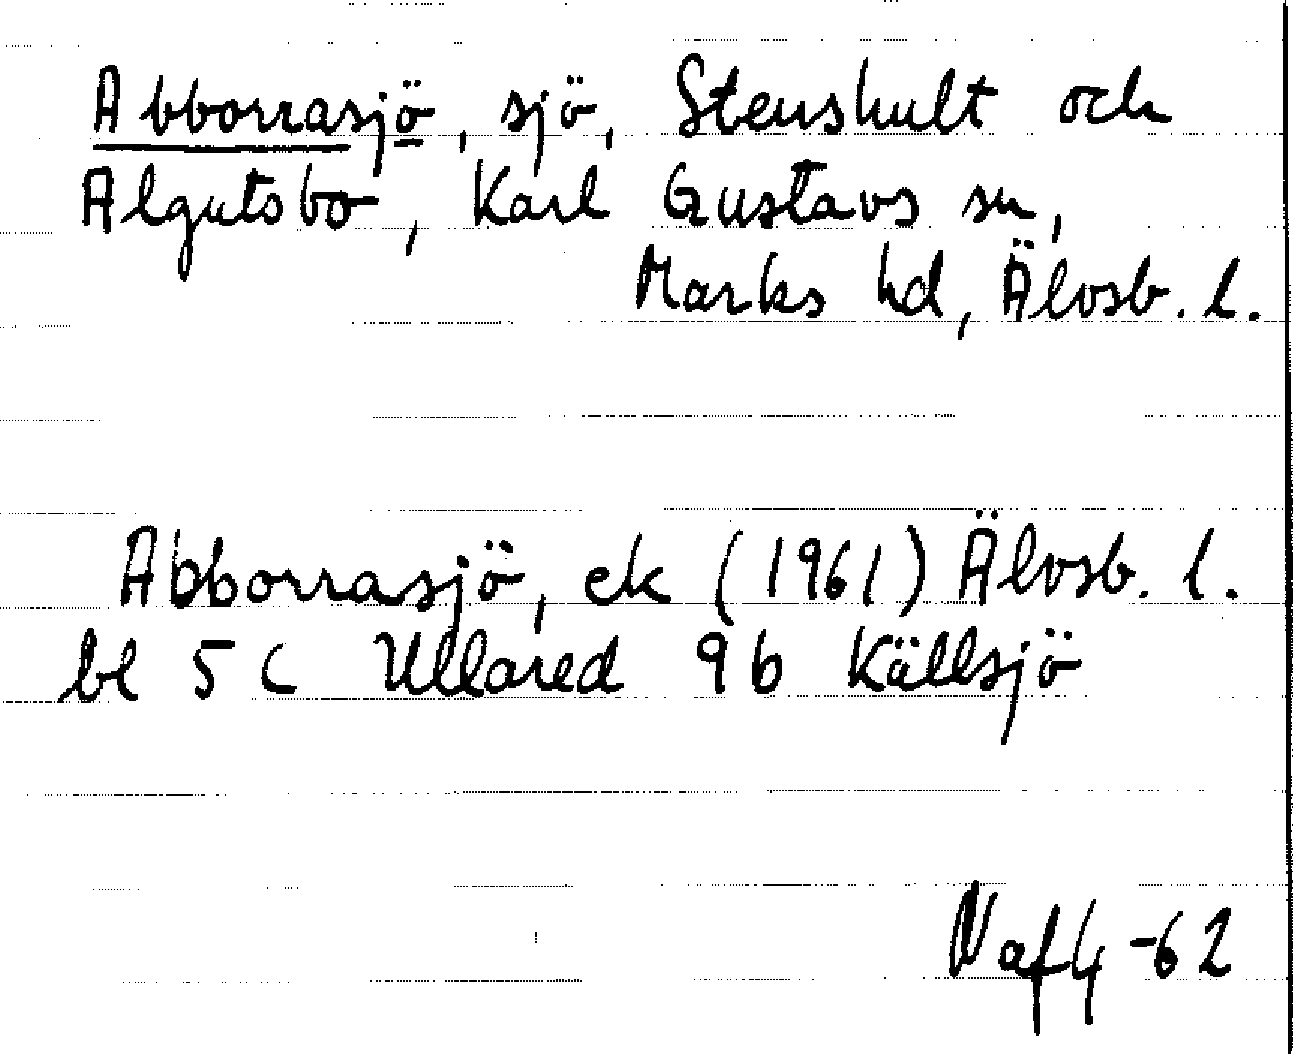 Abborrasjö, sjö, Stenshult och
Algutsbo, Karl Gustavs sn,
Marks hd, Älvsb. l.
Abborrasjö, ek (1961) Älvsb. l.
bl 5 C Ullared 9b Källsjö
-62